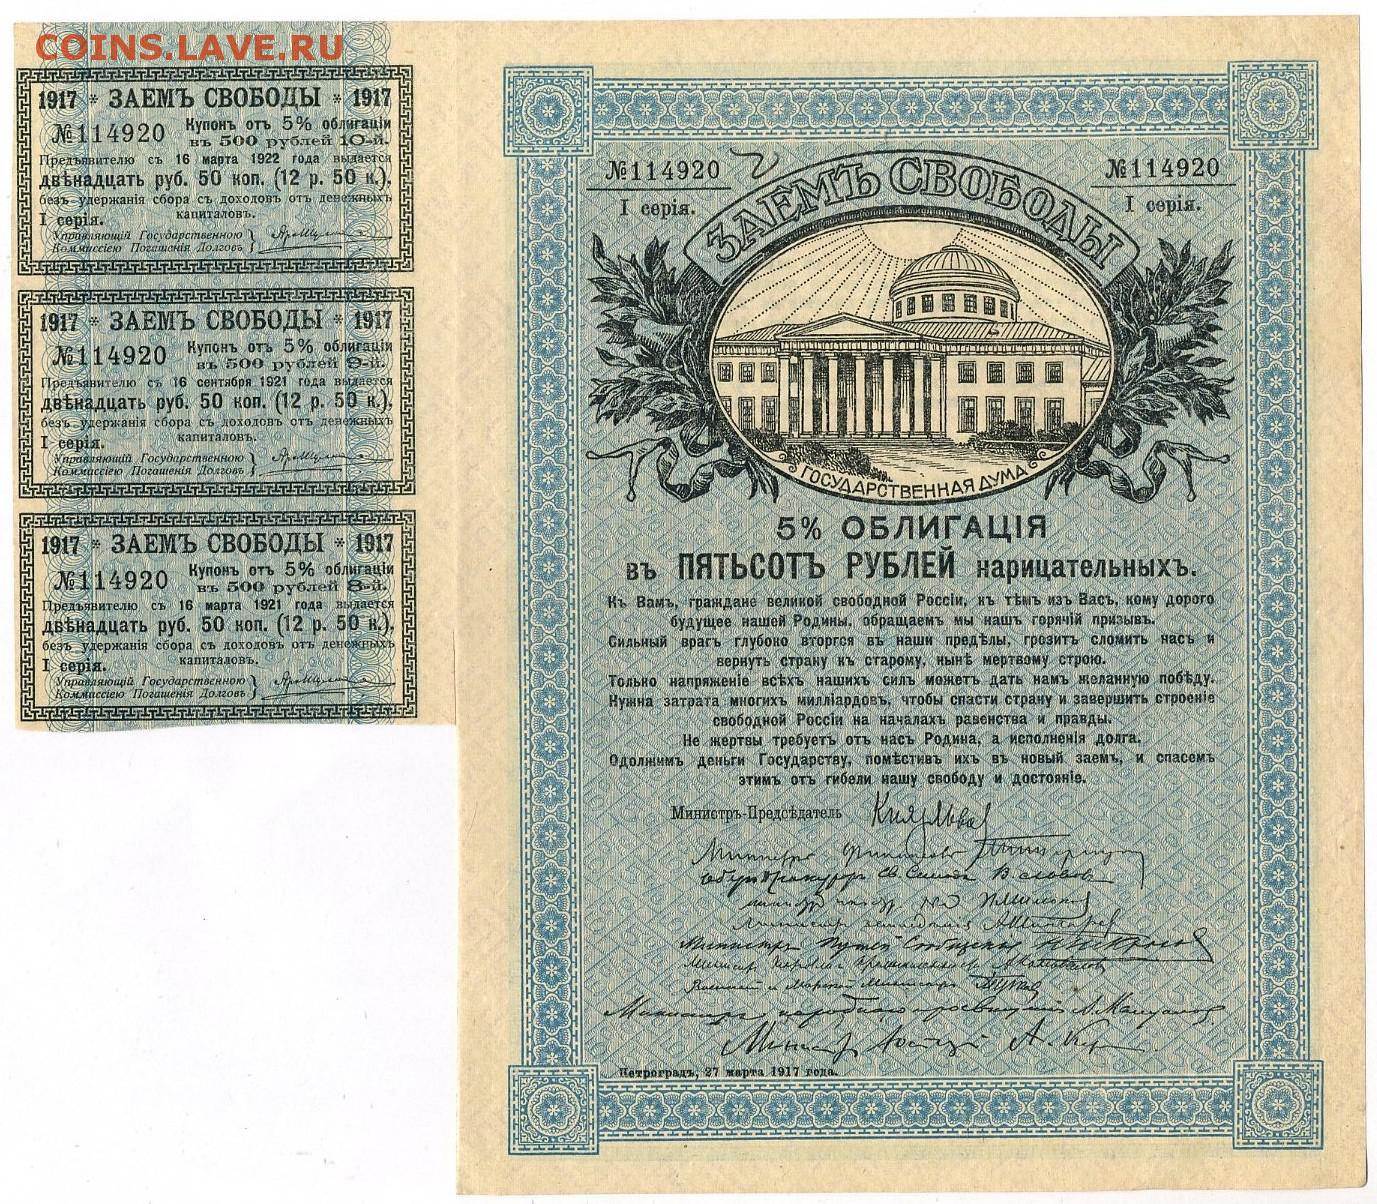 COINS.LAVE.RU
1917 * ЗАЕМЪ СВОБОДЫ * 1917
№114920 Купонъ отъ 5% облигаціи
въ 500 рублей 10-й.
Предъявителю съ 16 марта 1922 года выдается
двѣнадцать руб. 50 коп. (12 р. 50 к.),
безъ удержанія сбора съ доходовъ отъ денежныхъ
I серія. капиталовъ.
Управляющій Государственною
Коммиссіею Погашенія Долговъ
1917 * ЗАЕМЪ СВОБОДЫ * 1917
№114920 Купонъ отъ 5% облигаціи
въ 500 рублей 9-й.
Предъявителю съ 16 сентября 1921 года выдается
двѣнадцать руб. 50 коп. (12 р. 50 к.),
безъ удержанія сбора съ доходовъ отъ денежныхъ
I серія. капиталовъ.
Управляющій Государственною
Коммиссіею Погашенія Долговъ
1917 * ЗАЕМЪ СВОБОДЫ * 1917
№114920 Купонъ отъ 5% облигаціи
въ 500 рублей 8-й.
Предъявителю съ 16 марта 1921 года выдается
двѣнадцать руб. 50 коп. (12 р. 50 к.),
безъ удержанія сбора съ доходовъ отъ денежныхъ
I серія. капиталовъ.
Управляющій Государственною
Коммиссіею Погашенія Долговъ
№114920 №114920
I серія. I серія.
ЗАЕМЪ СВОБОДЫ
ГОСУДАРСТВЕННАЯ ДУМА
5% ОБЛИГАЦІЯ
въ ПЯТЬСОТЪ РУБЛЕЙ нарицательныхъ.
Къ Вамъ, граждане великой свободной Россіи, къ тѣмъ изъ Васъ, кому дорого
будущее нашей Родины, обращаемъ мы нашъ горячій призывъ.
Сильный врагъ глубоко вторгся въ наши предѣлы, грозитъ сломить насъ и
вернуть страну къ старому, нынѣ мертвому строю.
Только напряженіе всѣхъ нашихъ силъ можетъ дать намъ желанную побѣду.
Нужна затрата многихъ милліардовъ, чтобы спасти страну и завершить строеніе
свободной Россіи на началахъ равенства и правды.
Не жертвы требуетъ отъ насъ Родина, а исполненія долга.
Одолжимъ деньги Государству, помѣстивъ ихъ въ новый заемъ, и спасемъ
этимъ отъ гибели нашу свободу и достояніе.
Министръ-Предсѣдатель Кн. Львов
Министръ Финансовъ
Обер Прокурор Св. Синода В. Львов
Министръ Путей Сообщенія
Военный и Морской Министръ
Министръ народнаго просвѣщенія
Министр Юстиціи А.
Петроградъ, 27 марта 1917 года.